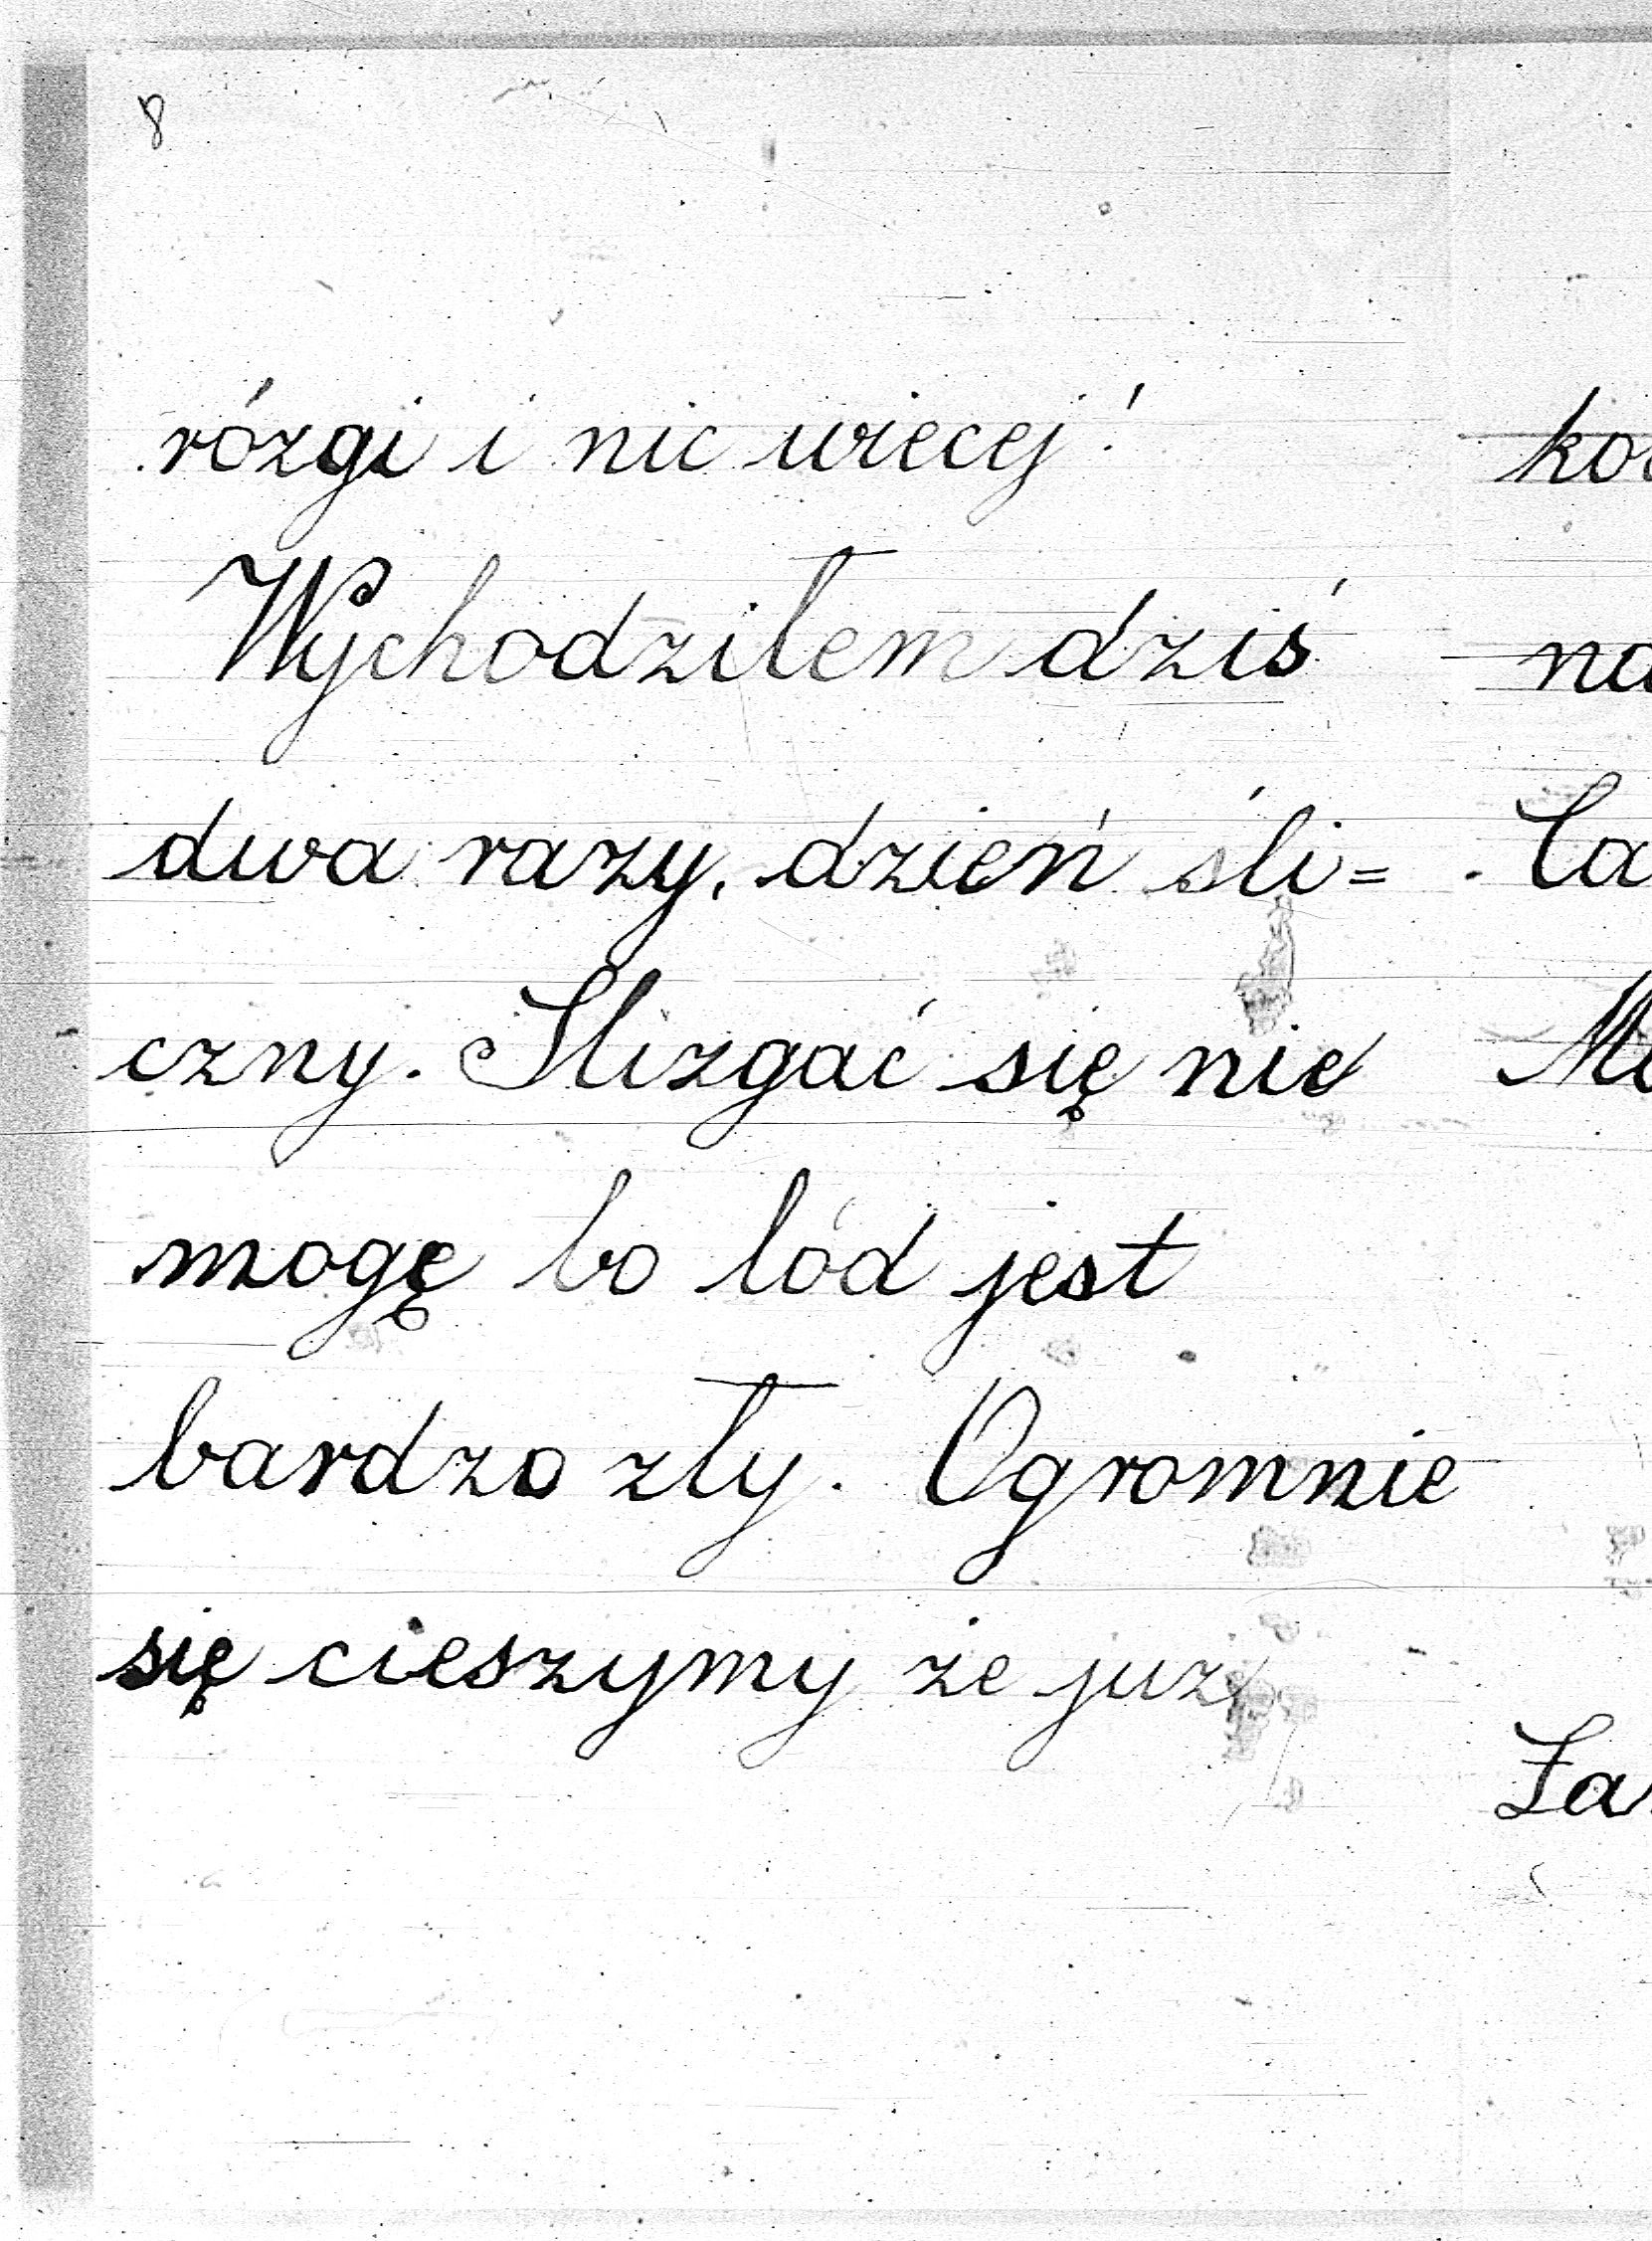 8
rózgi i nic wiecej!
Wychodziłem dziś
dwa razy, dzień śli=
czny. Slizgać się nie
mogę bo lód jest
bardzo zły. Ogromnie
się cieszymy że juz